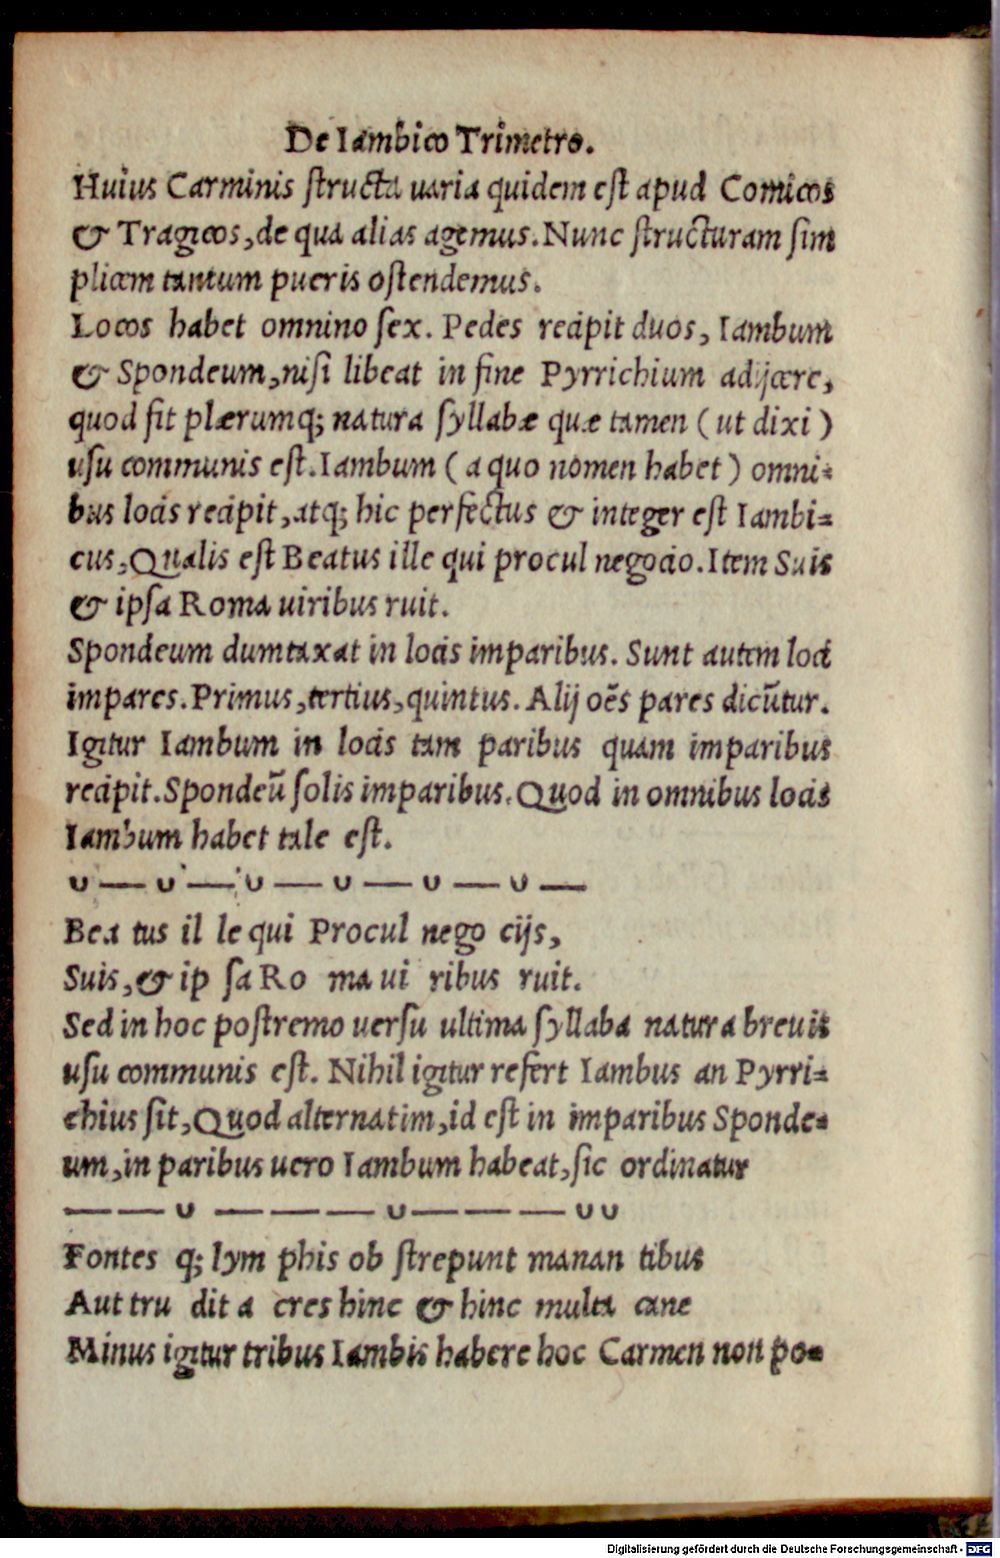 De Iambico Trimetro.
Huius Carminis structa uaria quidem est apud Comicos
& Tragicos, de qua alias agemus. Nunc structuram sim
plicem tantum pueris ostendemus.
Locos habet omnino sex. Pedes recipit duos, Iambum
& Spondeum, nisi libeat in fine Pyrrichium adijcere,
quod fit plærumq; natura syllabæ quæ tamen ( ut dixi )
usu communis est. Iambum ( a quo nomen habet ) omni-
bus locis recipit, atq; hic perfectus & integer est Iambi-
cus, Qualis est Beatus ille qui procul negocio. Item Suis
& ipsa Roma uiribus ruit.
Spondeum dumtaxat in locis imparibus. Sunt autem loci
impares. Primus, tertius, quintus. Alij oẽs pares dicũtur.
Igitur Iambum in locis tam paribus quam imparibus
recipit. Spondeũ solis imparibus. Quod in omnibus locis
Iambum habet tale est.
∪ — ∪ — ∪ — ∪ — ∪ — ∪ —
Bea tus il le qui Procul nego cijs,
Suis, & ip sa Ro ma ui ribus ruit.
Sed in hoc postremo uersu ultima syllaba natura breuis
usu communis est. Nihil igitur refert Iambus an Pyrri-
chius sit, Quod alternatim, id est in imparibus Sponde-
um, in paribus uero Iambum habeat, sic ordinatur
— — ∪ — — — ∪ — — — ∪ ∪
Fontes q; lym phis ob strepunt manan tibus
Aut tru dit a cres hinc & hinc multa cane
Minus igitur tribus Iambis habere hoc Carmen non po-
Digitalisierung gefördert durch die Deutsche Forschungsgemeinschaft - DFG